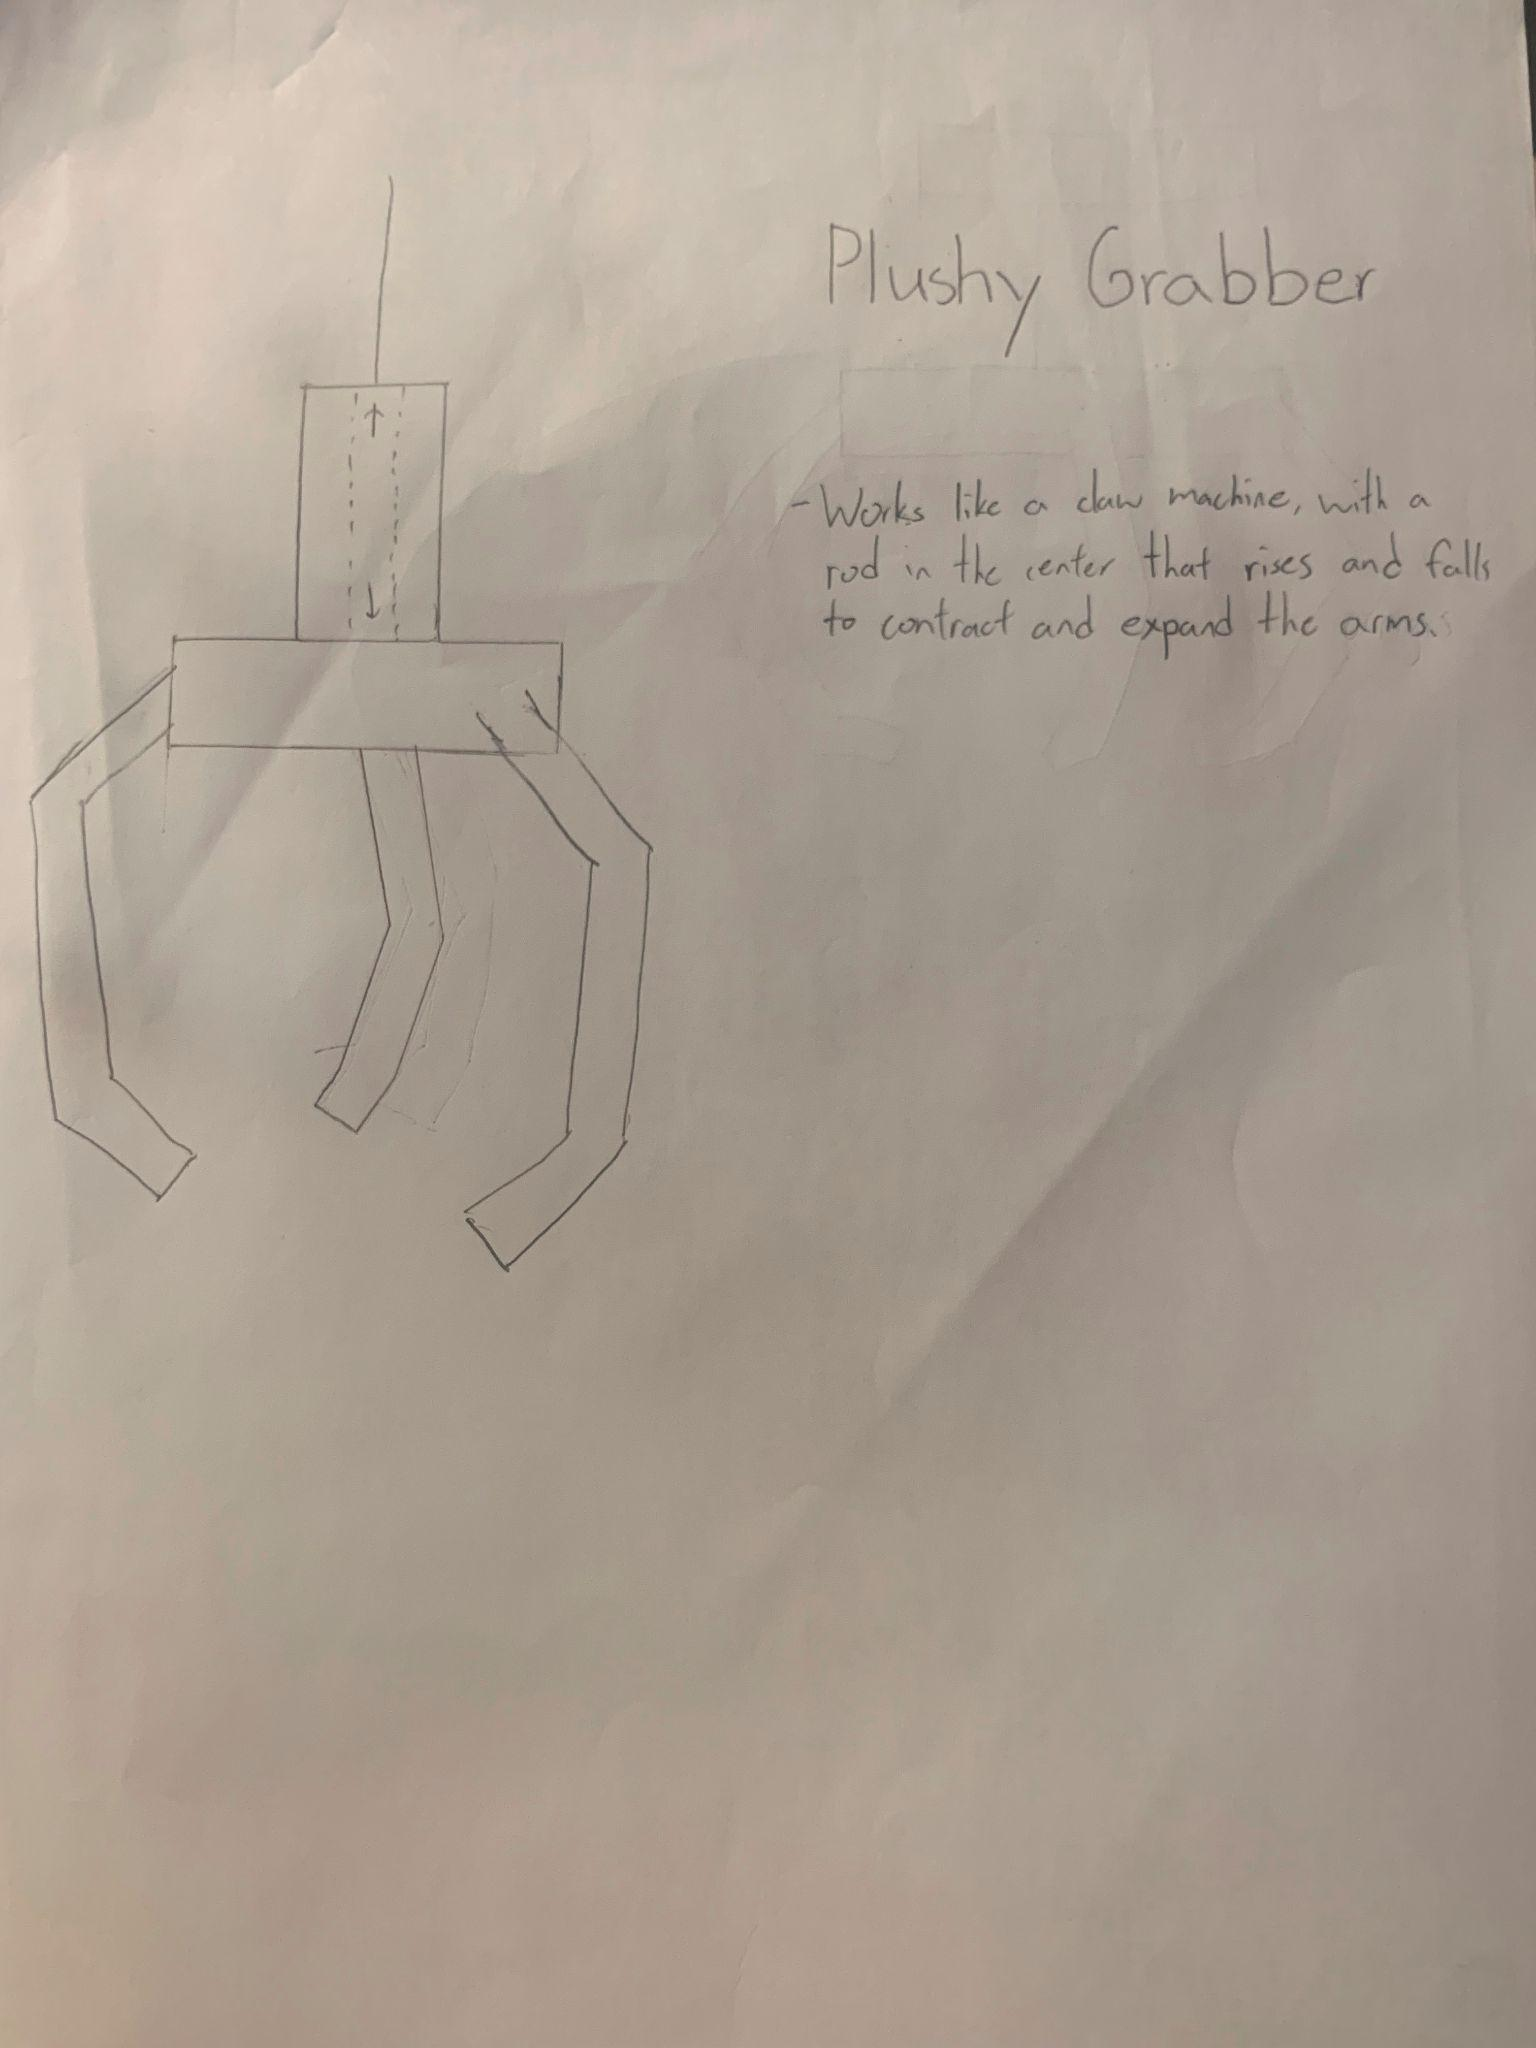 Plushy Grabber
- Works like a claw machine, with a
rod in the center that rises and falls
to contract and expand the arms.